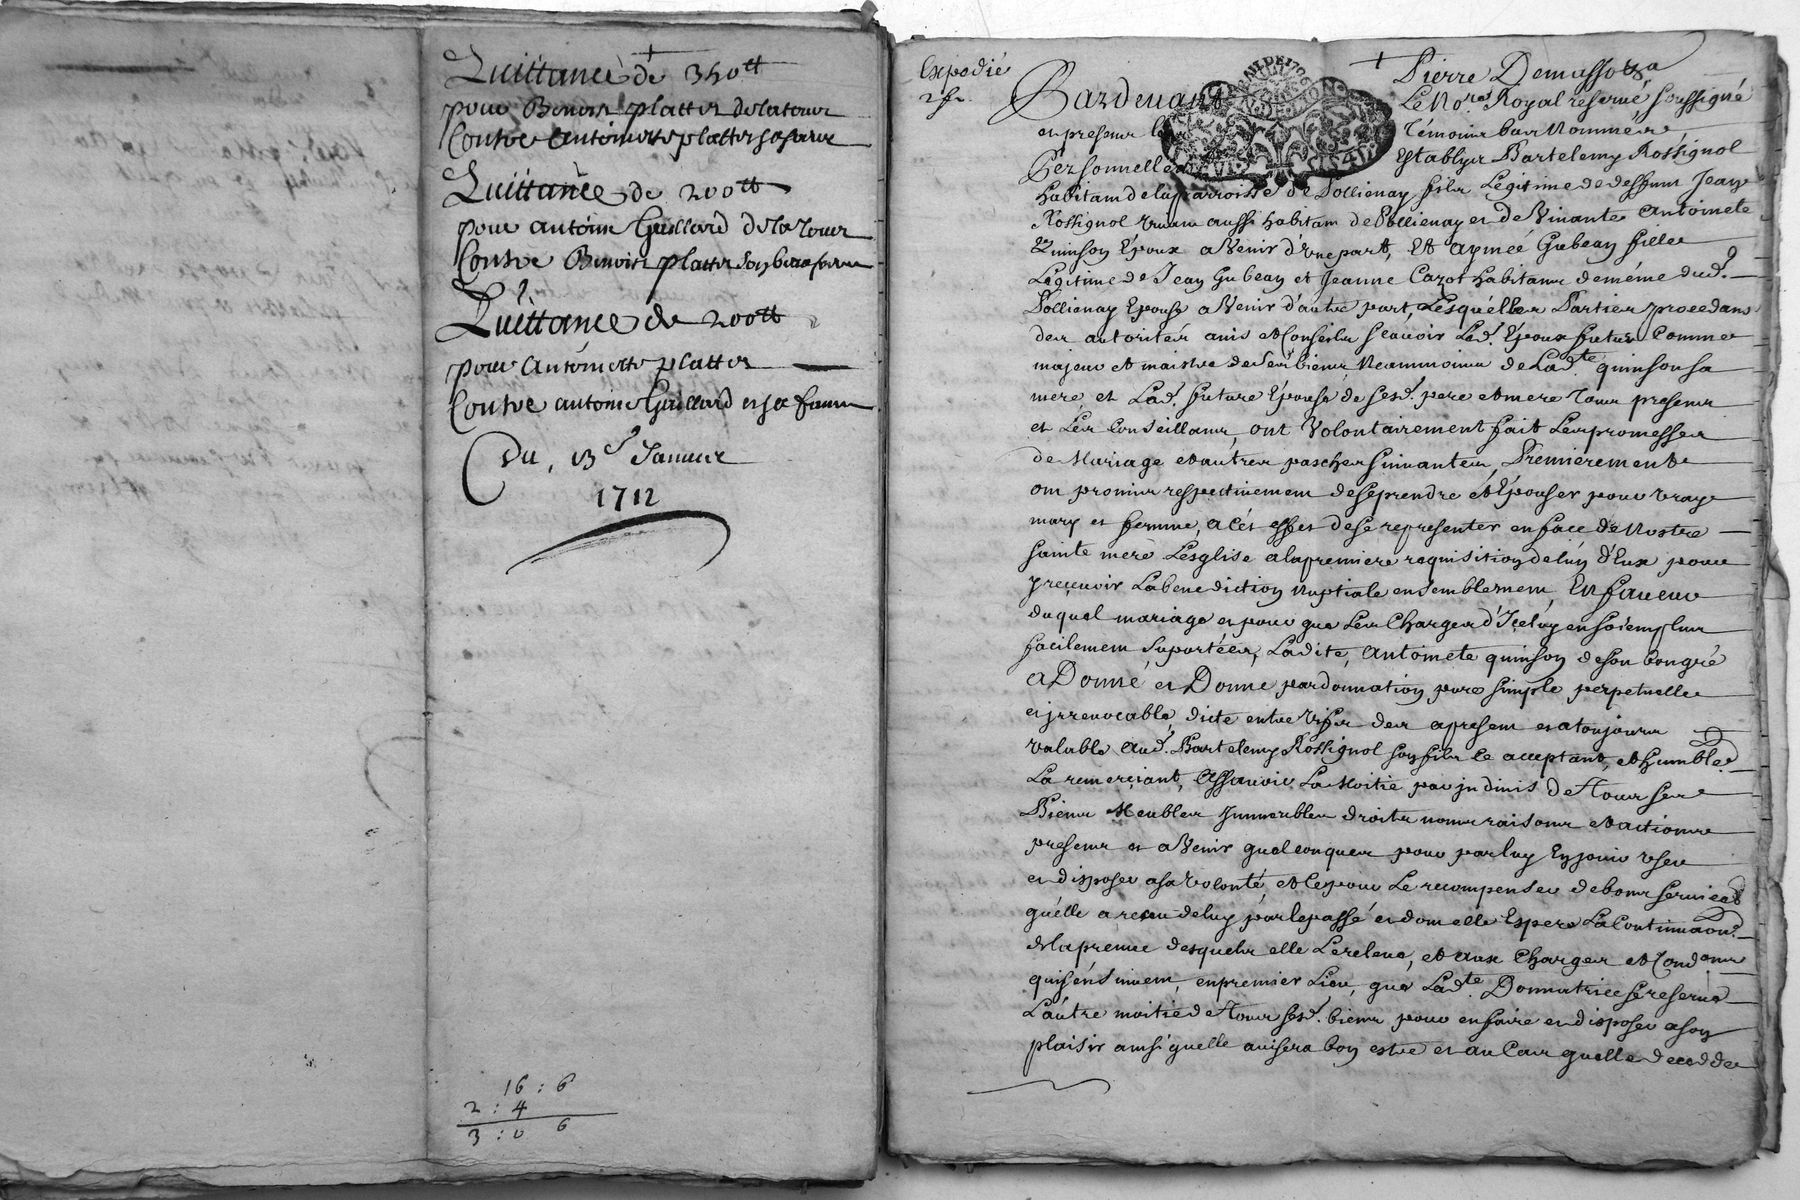 Quittance de 340tt
pour Benoist platter de la tour
Contre antoinette platter sa sœur
Quittance de 200tt
pour antoine Guillard de la tour
Contre Benoist platter son beau frere
Quittance de 200tt
pour antoinette platter
Contre antoine Guillard et sa femme
Du 13e Janvier
1712
16 : 6
2 : 4
3 : 0 6
Expedié
Pardevant Pierre Demussy
Le No.re Royal reservé soussigné
en presence Témoins bas Nommés
Personnellem establys Bartelemy Rossignol
habitant de la parroisse de Pollienay fils Légitime de deffunt Jean
Rossignol vivant aussi habitant de Pollienay et de Vivante Antoinete
Quinson Époux a Venir d'une part, Et aymeé Gubean fille
Légitime de Jean Gubean et Jeanne Cazot habitans de méme dud.
Pollienay Épouse a Venir d'autre part, Lesquélles Parties procedans
des autorités avis et Conseils scavoir Led. Époux futur Comme
majeur et maistre de ses biens Neammoins de Lad.te quinson sa
mere et Lad. future Épouse de ses d. pere et mere Tous presens
et Les Conseillans, ont Volontairement fait Les promesses
de Mariage et autres paches suivantes, Premierement
ont promis respectivement de se prendre et Épouser pour vrays
mary et femme, a cét effet de se representer en face de Nostre
sainte mere L'esglise a la premiere requisition de l'un d'Eux pour
y reçevoir La benediction nuptiale ensemblement, En faveur
duquel mariage et pour que Les Charges d'Içeluy en soient plus
facilement Suportéés, Ladite, Antoinete quinson de son bon gré
a Donné et Donne par donnation pure simple perpetuelle
et jrrevocable dicte entre vifs des a present et a toujours
valable aud. Bartelemy Rossignol son fils le acceptant, et humble
La remerçiant, Assavoir La Moitié par jndivis de Tous ses
Biens Meubles Jmmeubles droits noms raisons et actions
presens et a Venir quelconques pour par luy En jouir user
et disposer a sa volonté, et ce pour Le recompenser de bons services
qu'élle a receu de luy par le passé et dont elle Espere La Continuaon.
de la preuve desquels elle Le releve, et aux Charges et Condons
qui s'énsuivent, en premier Lieu, que Lad.te Donnatrice se reserve
L'autre moitié de Tous ses d. biens pour en faire et disposer a son
plaisir ainsi quelle avisera bon estre et au Cas quelle decedde